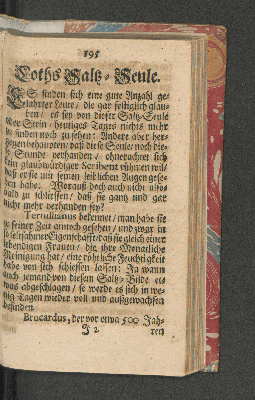 195
Loths Saltz-Seule.
ES finden sich eine gute Anzahl ge-
lahrter Leute / die gar festiglich glau-
ben / es sey von dieser Saltz-Seule
oder Stein / heutiges Tages nichts mehr
zu finden noch zu sehen: Andere aber her-
gegen behaupten / daß diese Seule noch die-
se Stunde verhanden / ohnerachtet sich
kein glaubwürdiger Scribent rühmen wil /
daß er sie mit seinen leiblichen Augen gese-
hen habe. Worauß doch auch nicht alsos
bald zu schliessen / daß sie gantz und gar
nicht mehr verhanden sey?
Tertullianus bekennet / man habe sie
zu seiner Zeit annoch gesehen / und zwar in
so seltzahmer Eigenschafft / daß sie gleich einer
lebendigen Frauen / die ihre Monatliche
Reinigung hat / eine röhtliche Feuchtigkeit
habe von sich schiessen lassen: Ja wann
auch jemand von diesem Saltz-Bilde et-
was abgeschlagen / so werde es sich in we-
nig Tagen wieder voll und außgewachsen
befinden.
Brucardus, der vor etwa 500 Jah-
J 2 ren